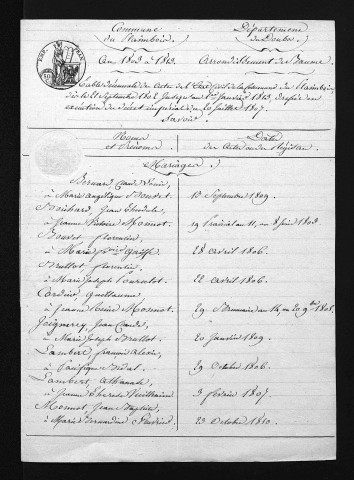 Commune
de Flaimbois.
Département
du Doubs.
An 1802 à 1813.
Arrondissement de Baume.
Table décennale des actes de l'Etat civil de la Commune de
depuis le 21 Septembre 1802 Jusqu'au 1er Janvier 1813, dressée en
exécution du décret impérial du 20 Juillet 1807.
Savoir:
Noms
et Prénoms.
Date
des Actes ou des Registres.
Mariages.
Bernard Claude
à Marie Angélique Bouvet 13 Septembre 1809.
Jean Théodule
à Jeanne Monnot. 19 Prairial an 11, ou 8 Juin 1803
Bouvet florentin
à Marie 28 Avril 1806.
Brullot, florentin,
à Marie Joseph 22 Avril 1806.
Cordier, Guillaume
à Jeanne Reine Monnot. 29 Brumaire an 14, ou 20 9bre 1805.
Jean Claude,
à Marie Joseph Brullot. 20 Janvier 1809.
Lambert, françois Alexis,
à Pacifique Bidal. 29 Octobre 1806.
Lambert, Athanase,
à Jeanne Thérèse Vuilhaime 3 février 1807.
Monnot, Jean Baptiste,
à Marie Bernardine 23 Octobre 1810.